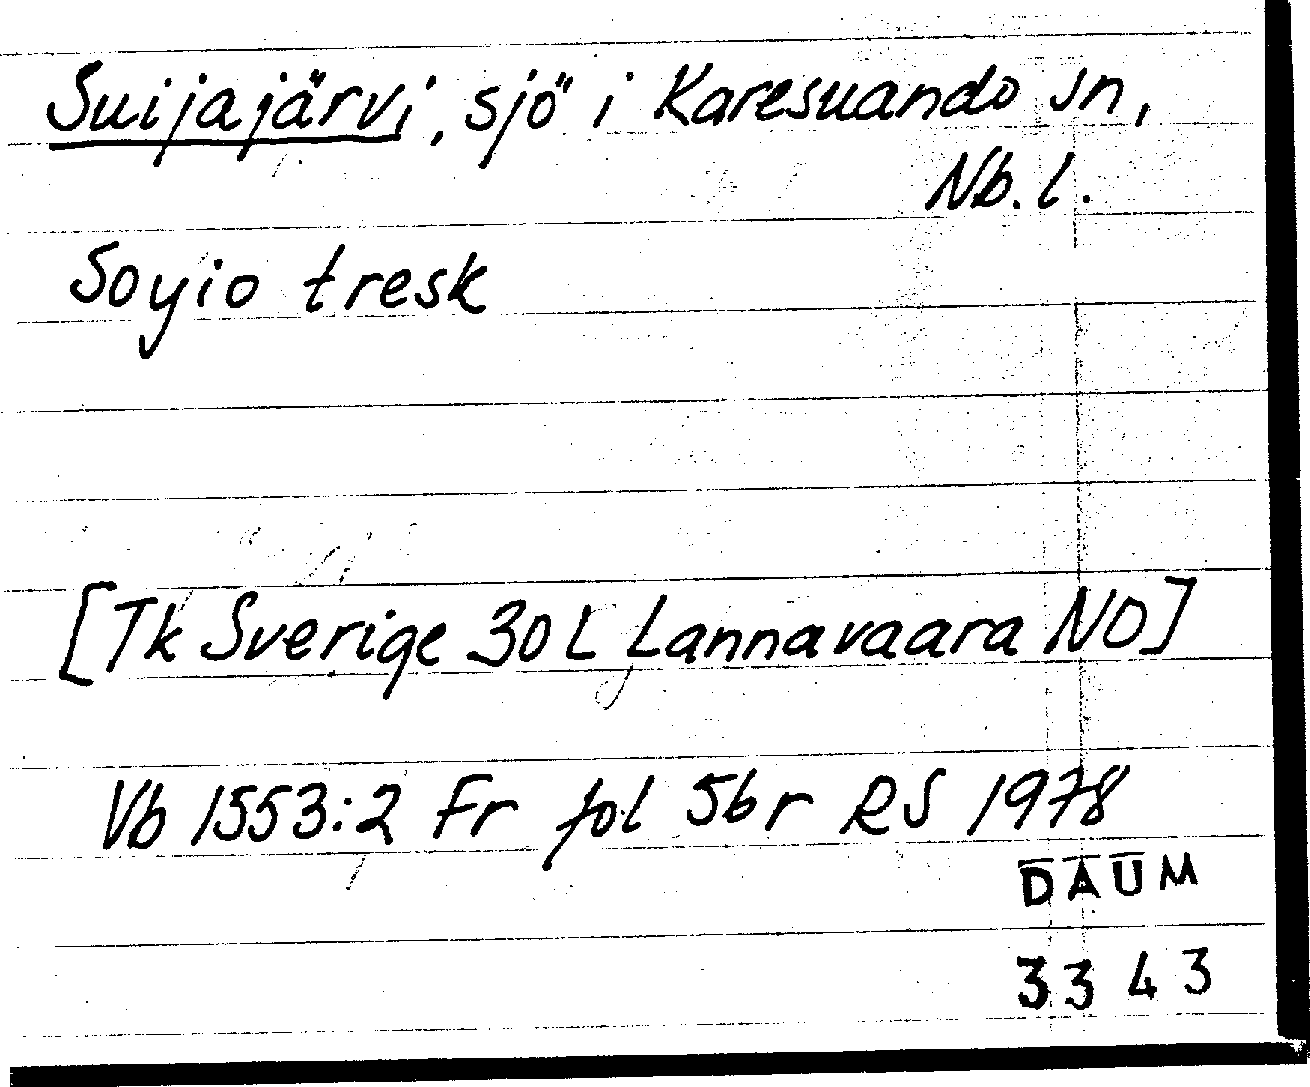 Suijajärvi, sjö i Karesuando sn,
Nb. l.
Soyio tresk
[Tk Sverige 30 L Lannavaara NO]
Vb 1553:2 Fr fol 56r RS 1978
DAUM
3343